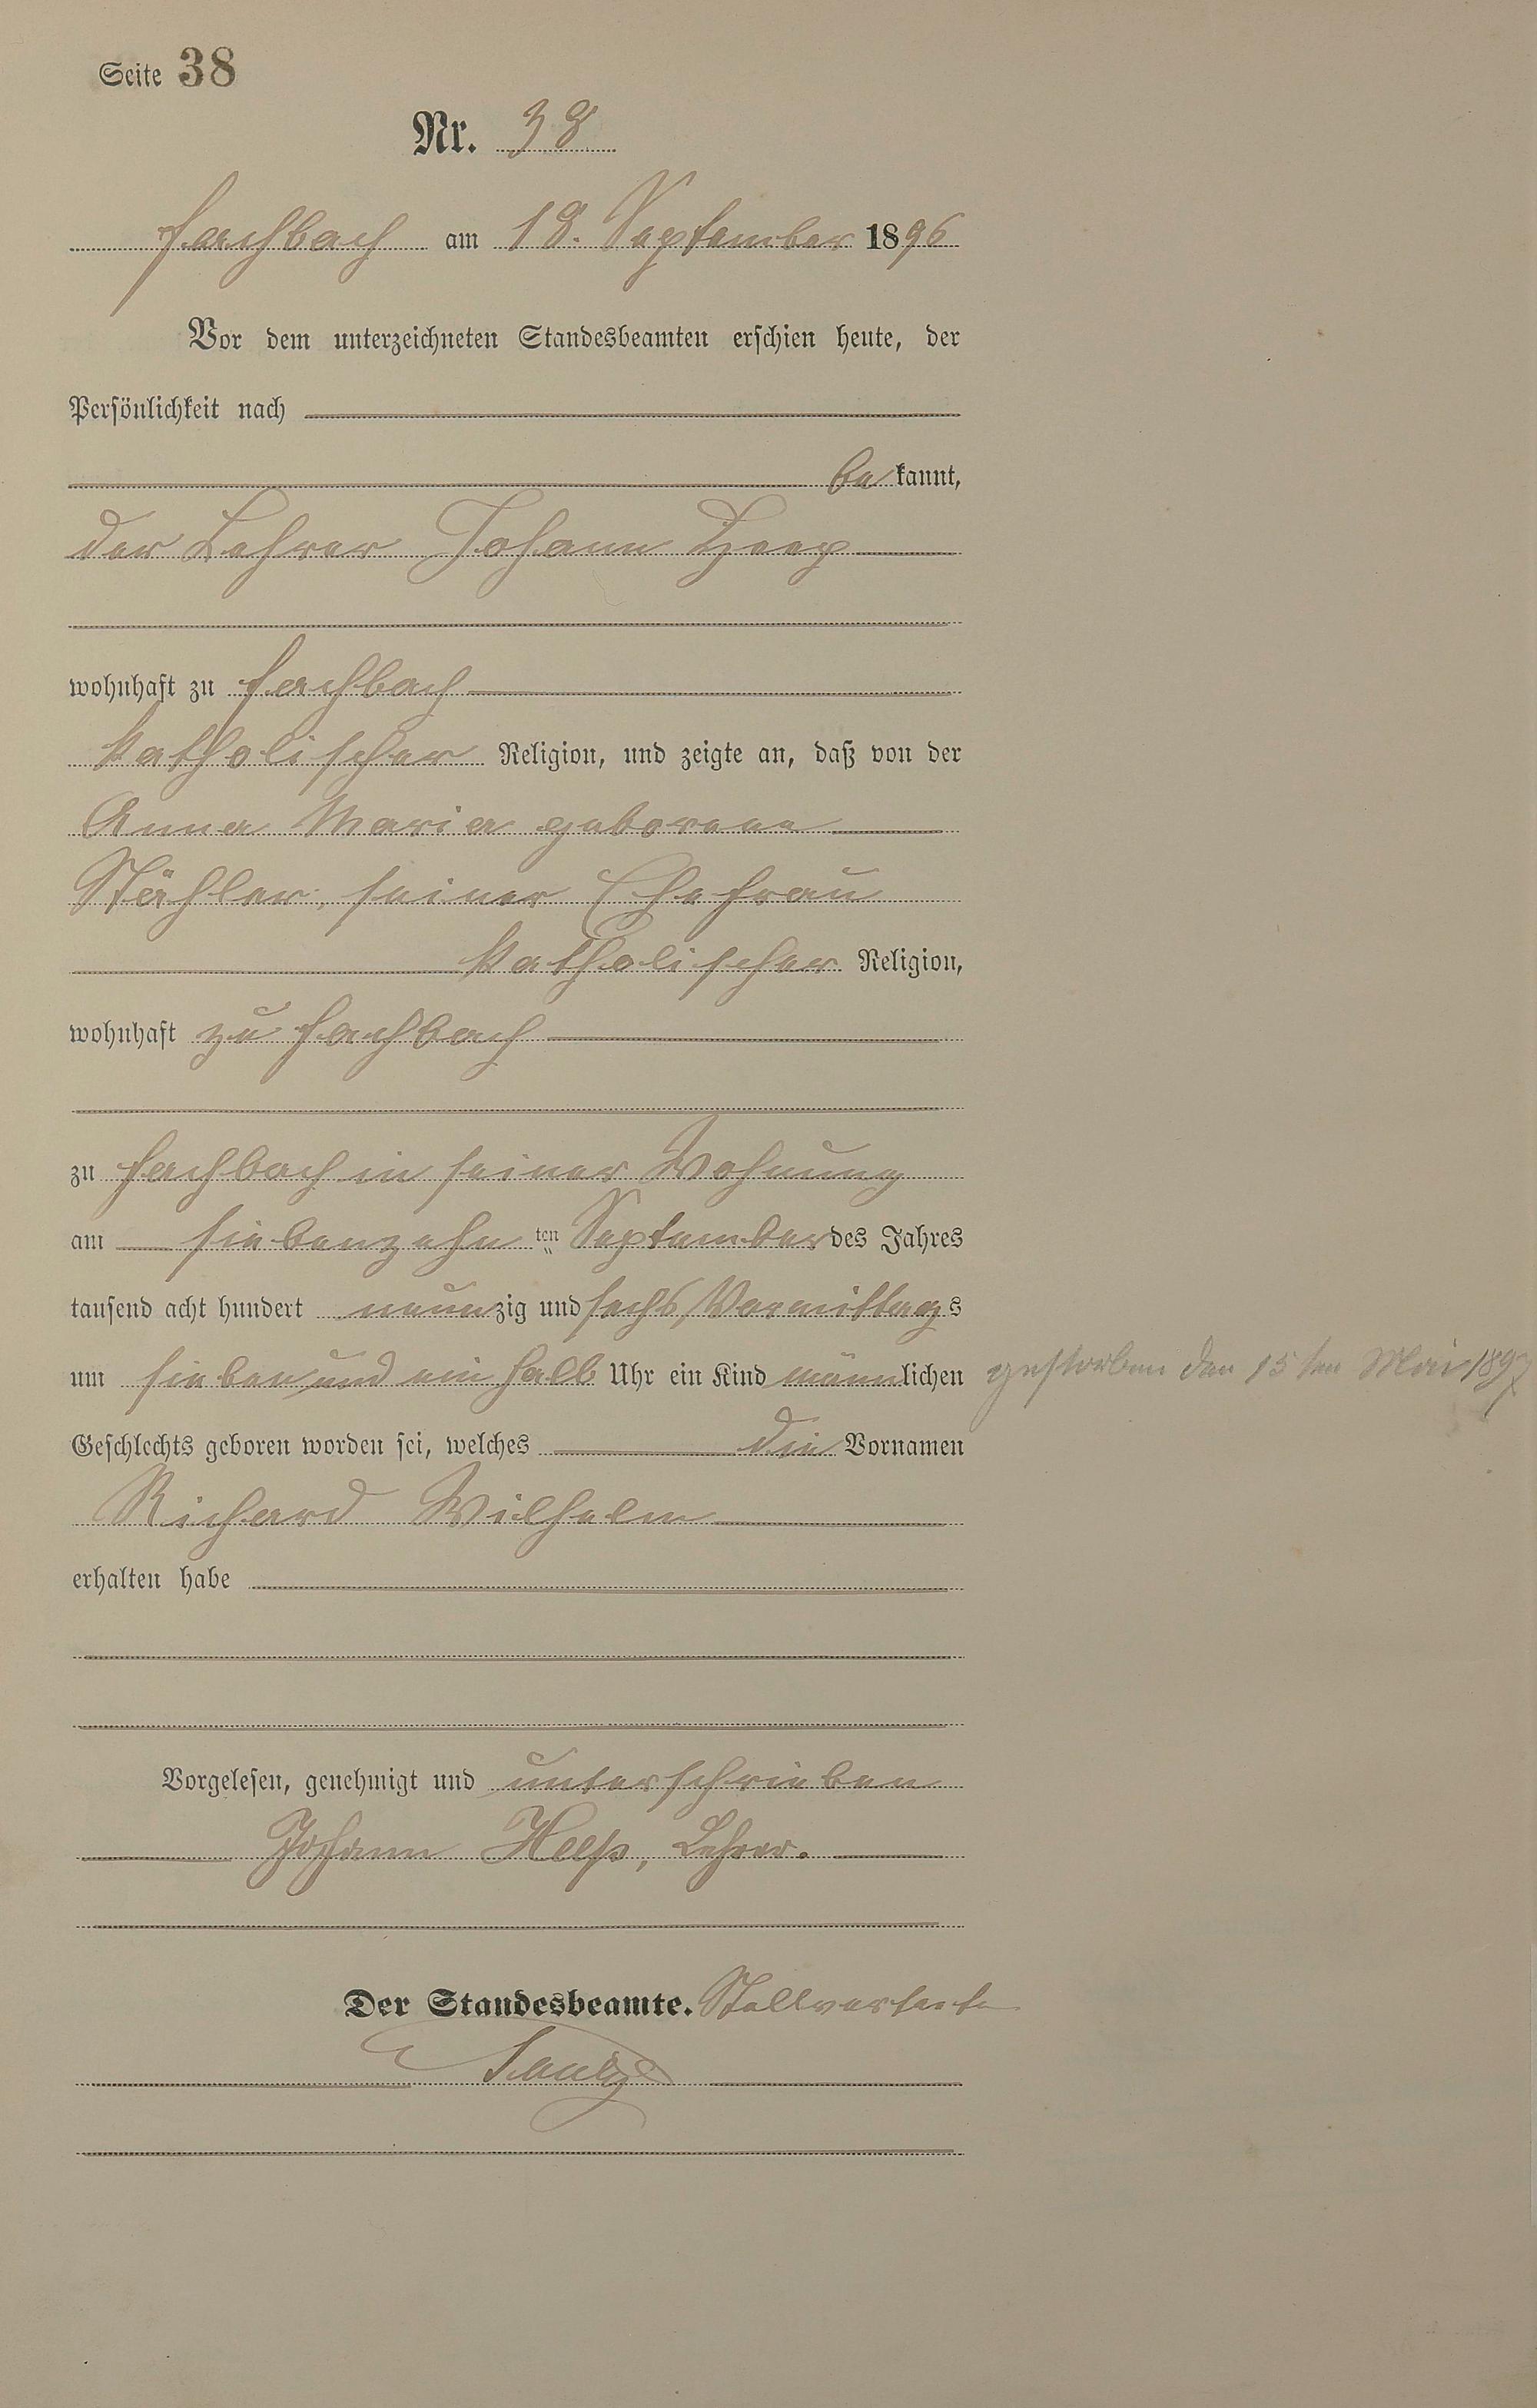 Seite 38
Nr. 38
Fachbach am 18. September 1896
Vor dem unterzeichneten Standesbeamten erschien heute, der
Persönlichkeit nach
be kannt,
der Lehrer Johann
wohnhaft zu Fachbach
katholischer Religion, und zeigte an, daß von der
Anna Maria geborene
Stähler, seiner Ehefrau
katholischer Religion,
wohnhaft zu Fachbach
zu Fachbach in seiner Wohnung
am siebenzehn ten September des Jahres
tausend acht hundert neunzig und sechs, Vormittags
um sieben und ein halb Uhr ein Kind männlichen
gestorben den 15ten Mai 1897
Geschlechts geboren worden sei, welches die Vornamen
Richard Wilhelm
erhalten habe
Vorgelesen, genehmigt und unterschrieben
Johann Lehrer.
Der Standesbeamte.